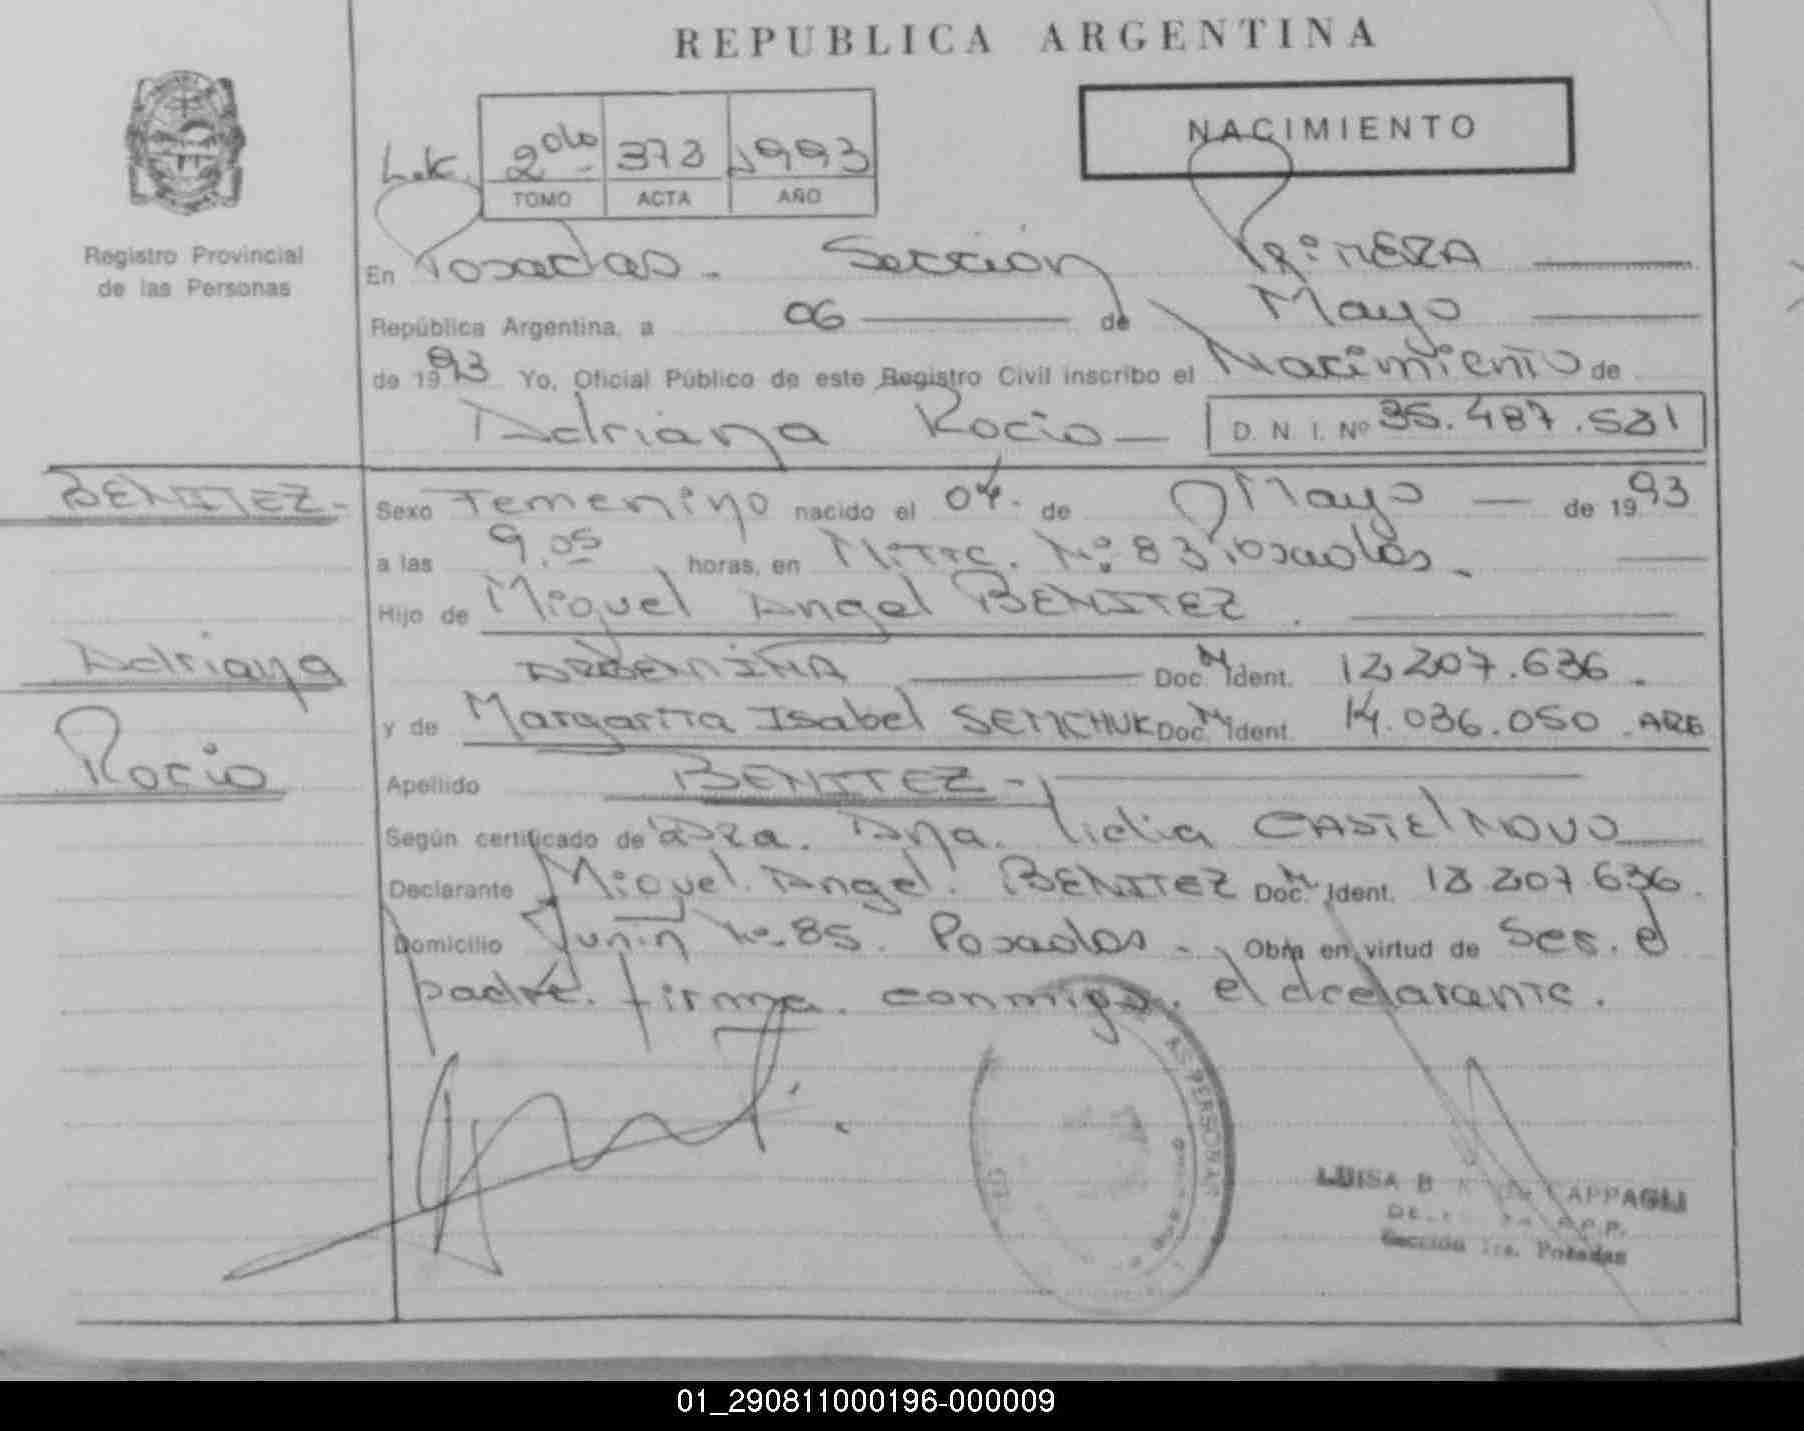 REPUBLICA ARGENTINA
NACIMIENTO
2do 373 1993
TOMO ACTA AÑO
Registro Provincial
de las Personas
En Posadas - Sección Primera
República Argentina, a 06 de Mayo
de 1993 Yo, Oficial Público de este Registro Civil inscribo el Nacimiento de
Adriana Rocio - D. N. I. Nº 35.487.521
BENITEZ -
Sexo Femenino nacido el 04 de Mayo - de 1993
a las 9.05 horas, en Mitre Nº 83 Posadas.
Hijo de Miguel Angel BENITEZ
Adriana
ARGENTINA Doc. M Ident. 12.207.636.
y de Margarita Isabel SEMCHUK Doc. M Ident. 14.036.050. ARG
Rocio
Apellido BENITEZ -
Según certificado de Dra. Ana lidia CASTELNOVO
Declarante Miguel Angel BENITEZ Doc. M Ident. 12.207.636.
Domicilio Junin Nº 85. Posadas - Obra en virtud de Ser. el
padre. firma conmigo. el declarante.
AS PERSONAS
LUISA B CAPPAGLI
Sección 1ra. Posadas
01_290811000196-000009